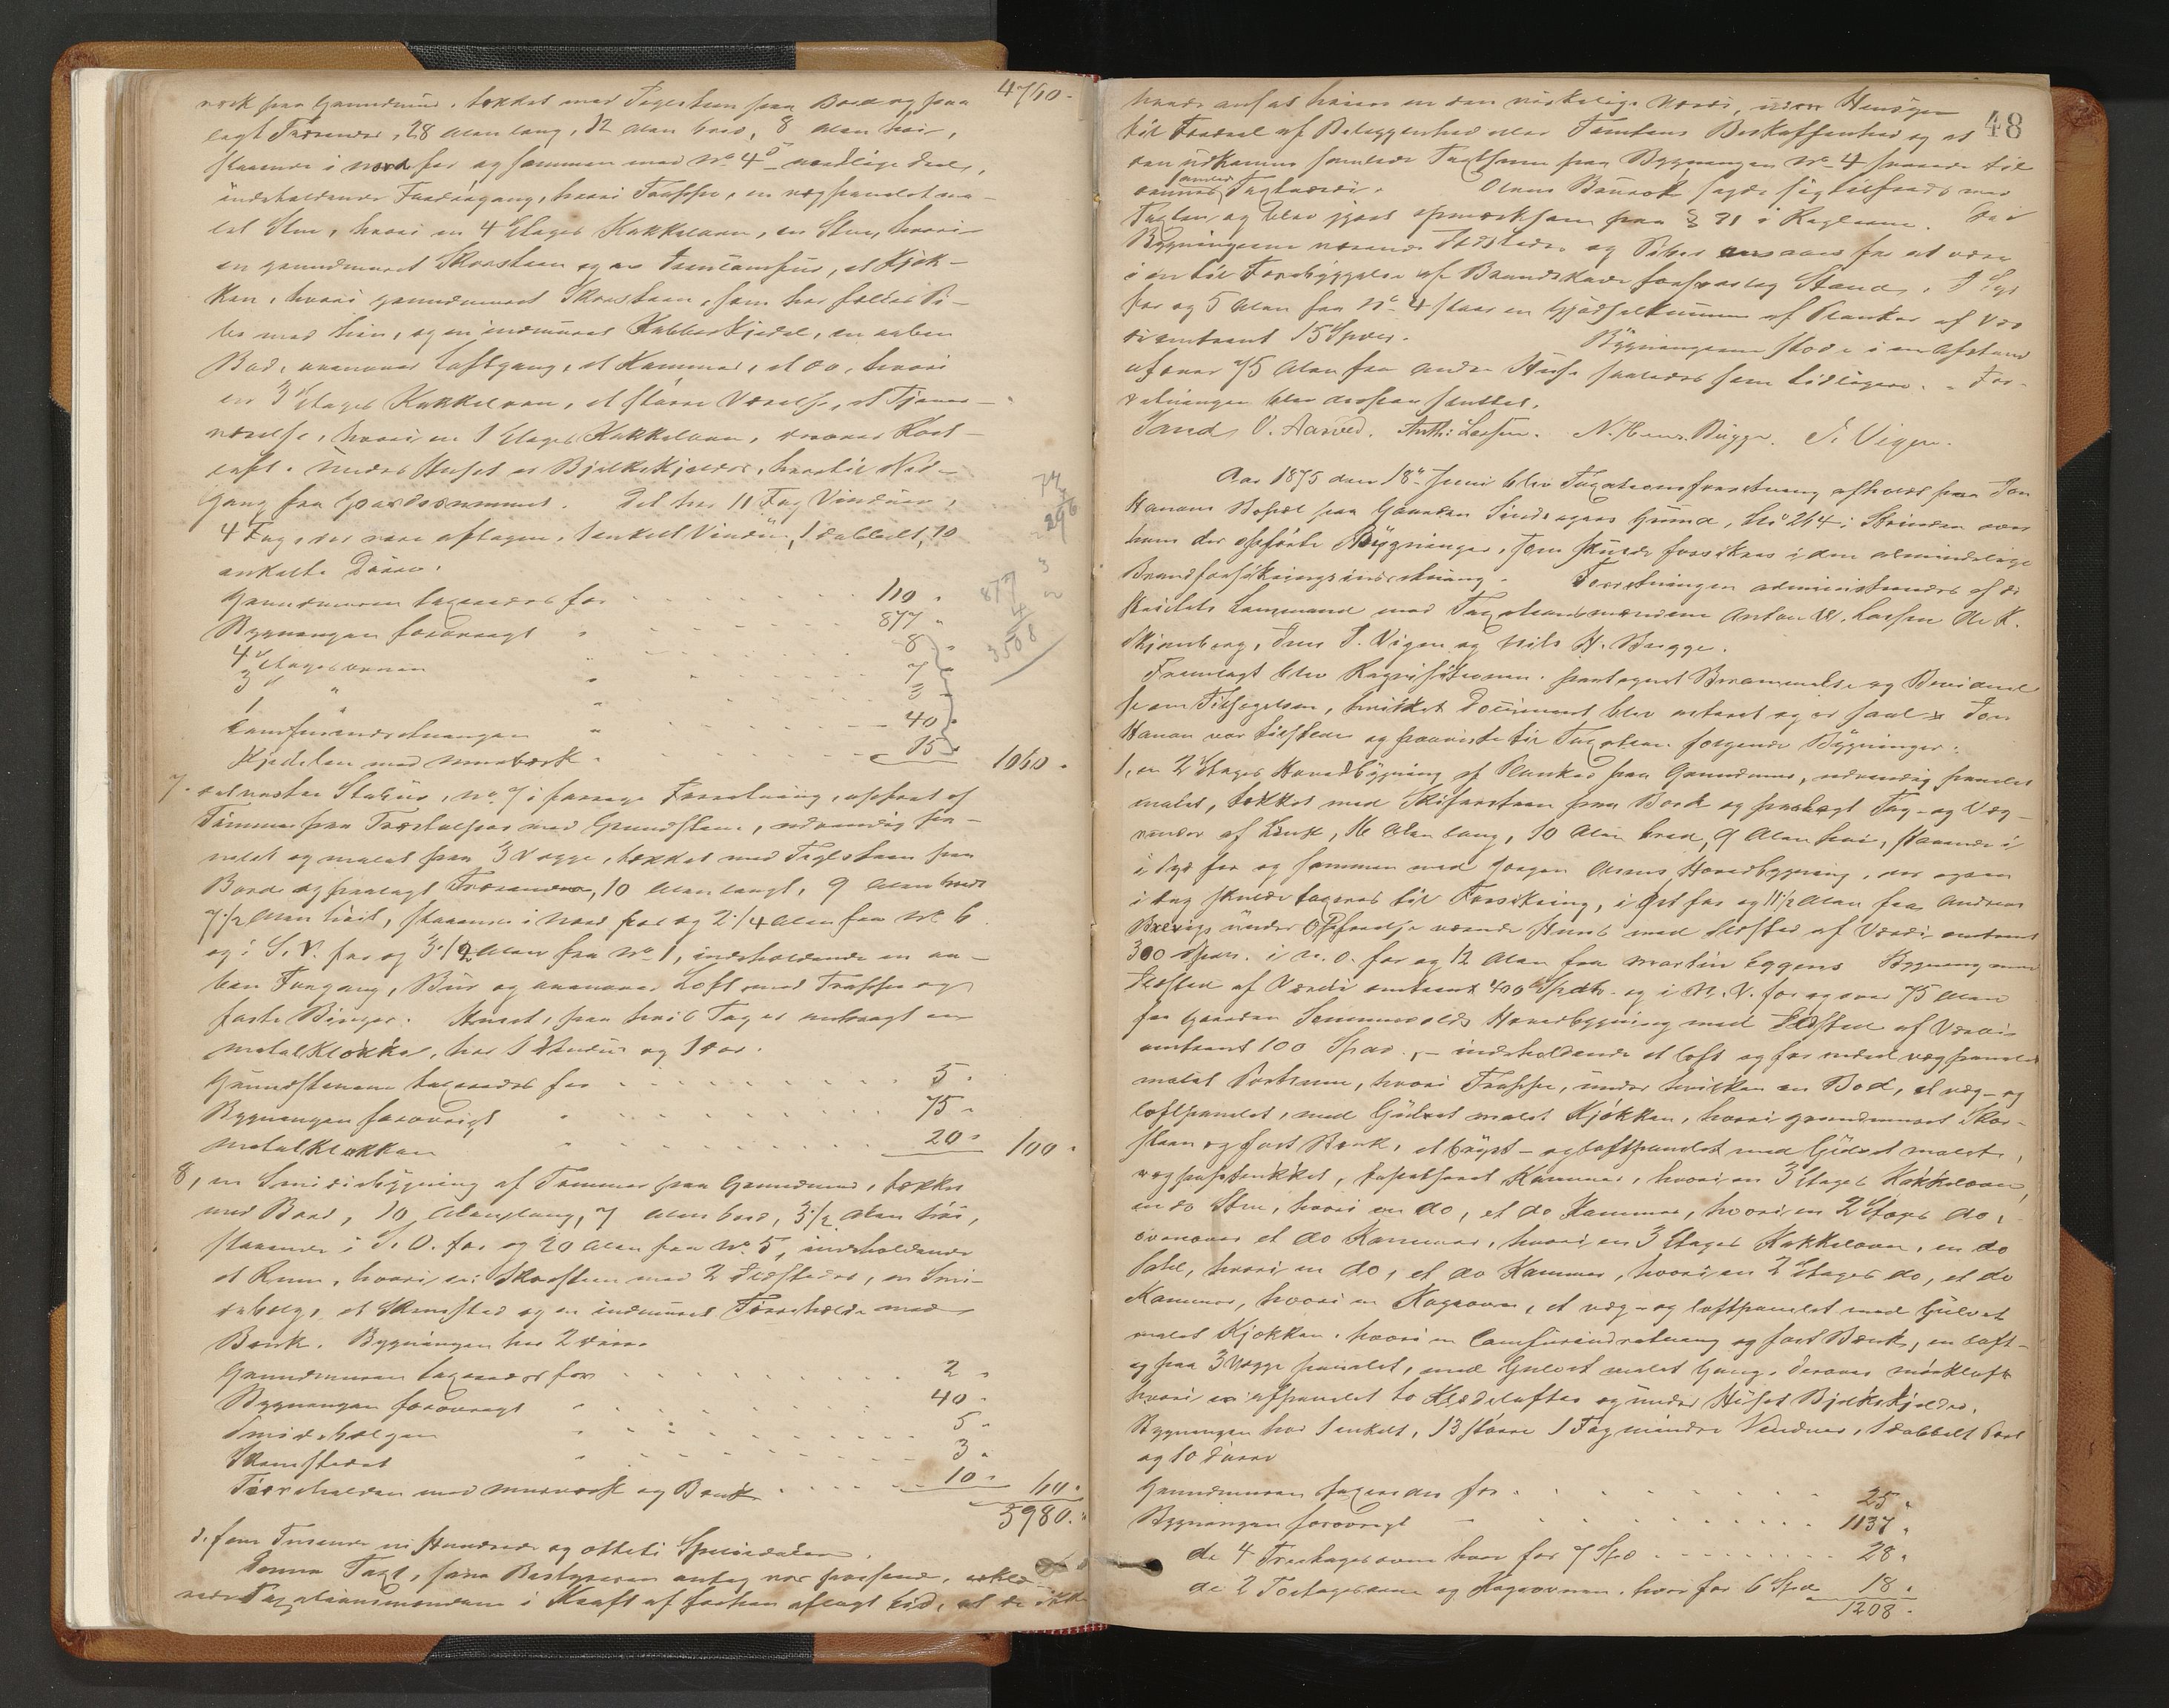 4760.
værk paa Grundmuur, tækket med Teglsteen paa Bord og paa
lagt Trærender, 28 Alen lang, 12 Alen bred, 8 Alen høi,
staaende i nord for og sammen med No 4s nordlige Deel,
indeholdende Fordørgang, hvori Trappe, en vægpanelet ma-
let Stue, hvori en 4 Etages Kakkelovn, en Stue, hvori
en grundmuret Skorsteen og en Comfur, et Kjøk-
ken, hvori grundmuret Skorsteen, som har fælles Pi-
be med hiin, og en indmuret Kobberkjedel, en aaben
Bod, ovenover Loftgang, et Kammer, et do, hvori
en 3 Etages Kakkelovn, et større Værelse, et Tjener-
værelse, hvori en 1 Etages Kakkelovn, derover Korn-
loft. Under Huset er Bjelkekjelder, hvortil Ned-
gang fra Gaardsrummet. Det har 11 Fag Vinduer,
4 Fag, der vare aftagen, 1 enkelt Vindu, 1 dobbelt, 10
enkelte Døre.
Grundmuren taxeredes for 110.
Bygningen forøvrigt " 877 "
4 Etagesovnen " 8 "
3 " " 7 "
1 " " 3 "
Comfurindretningen " 40 "
Kjedelen med Murværk " 15 " 1060.
7. det vestre Stabur, No 7 i forrige Forretning, opført af
Tømmer paa Træstolper med Grundstene, udvendig pa-
nelet og malet paa 3 Vægge, tækket med Teglsteen paa
Bord og paalagt Trærender, 10 Alen langt, 9 Alen bredt
7 1/2 Alen høit, staaende i Nord for og 2 1/4 Alen fra No 6
og i S.V. for og 3 1/2 Alen fra No 1, indeholdende en aa-
ben Forgang, Bur og ovenover Loft med Trappe og
faste Binger. Huset, paa hvis Tag er anbragt en
Metalklokke, har 1 Vindu og 1 Dør.
Grundstenene taxeredes for 5.
Bygningen forøvrigt " 75 "
Metalklokken " 20 " 100.
8, en Smidiebygning af Tømmer paa Grundmuur, tækket
med Bord, 10 Alen lang, 7 Alen bred, 3 1/2 Alen høi,
staaende i S.O. for og 20 Alen fra No 5, indeholdende
et Rum, hvori en Skorsteen med 2 Ildsteder, en Smi-
debelg, et Skrusted og en indmuret Tørrehelde med
Bænk. Bygningen har 2 Døre
Grundmuren taxeredes for 2 "
Bygningen forøvrigt " 40 "
Smidebelgen " 5 "
Skrustedet " 3 "
Tørrehelden med Murværk og Bænk 10 " 60.
5980.
d. fem Tusende ni Hundrede og otteti Speciedaler.
Denne Taxt, som Bestyreren antog var passende, erklæ-
rede Taxationsmændene i Kraft af forhen aflagt Eed, at de ikke
74
4
296
3
877
4
3508
48
havde ansat høiere en den virkelige Værdi, uden Hensyn
til Fordeel af Beliggenhed eller Tomtens Beskaffenhed og at
den udkomne samlede Taxtsum paa Bygningen No 4 svarede til
sammes samlede Taxtværdi. Claus sagde sig tilfreds med
Taxten, og blev gjort opmærksom paa § 31 i Reglerne. De i
Bygningerne værende Ildsteder og Piber ansaaes for at være
i en til Forebyggelse af Brandskade forsvarlig Stand. I Syd
for og 5 Alen fra No 4 staar en Gjødselkumme af Planker af Vær
di omtrent 15 Spdlr. Bygningerne stode i en Afstand
af over 75 Alen fra andre Huse saaledes som tidligere. For-
retningen blev dermed sluttet.
V. Aarved. Anth: Larsen. N. Hens. Bugge. J. Vigen.
Aar 1875 den 18de Juni blev Taxationsforretning afholdt paa Jon
Hanans Bopæl paa Gaarden Grund, No 264 i Strinden over
ham der opførte Bygninger, som skulde forsikres i den almindelige
Brandforsikringsindretning. Forretningen administreredes af Di
strictets Lensmand med Taxationsmændene Anton W. Larsen Ole K.
Skjensberg, Jens P. Vigen og Nils H. Bugge.
Fremlagt blev Reqvisitionen paategnet Berammelse og Beviis
for om Tilsigelsen, hvilket Document blev oplæst og er saal. Jon
Hanan var tilstede og paaviste til Taxation følgende Bygninger:
1, en 2 Etages Hovedbygning af Planker paa Grundmuur, udvendig panelet
malet, tækket med Skifersteen paa Bord og paalagt Tag- og Væg-
render af Zink, 16 Alen lang, 10 Alen bred, 9 Alen høi, staaende i
i Syd for og sammen med Jørgen Hovedbygning, der ogsaa
i dag skulde taxeres til Forsikring, i Øst for og 11 1/2 Alen fra Andreas
under Opførelse værende Huus med Ildsted af Værdi omtrent
300 Spdr. i N.O. for og 12 Alen fra Martin Eggens Bygning med
Ildsted af Værdi omtrent 400 Spdlr. og i N.V. for og over 75 Alen
fra Gaarden Hovedbygning med Ildsted af Værdi
omtrent 100 Spdr., - indeholdende et loft og for endeel vægpanelet
malet Portrum, hvori Trappe, under hvilken en Bod, et væg- og
loftpanelet, med Gulvet malet Kjøkken, hvori grundmuret Skor-
steen og fast Bænk, et bryst- og loftpanelet med Gulvet malet,
vægpaptrækket, tapetseret Kammer, hvori en 3 Etages Kakkelovn,
en do Stue, hvori en do, et do Kammer, hvori en 2 Etages do,
ovenover et do Kammer, hvori en 3 Etages Kakkelovn, en do
Sahl, hvori en do, et do Kammer, hvori en 2 Etages do, et do
Kammer, hvori en Kogeovn, et væg- og loftpanelet med Gulvet
malet Kjøkken, hvori en Comfurindretning og fast Bænk, en loft-
og paa 3 Vægge panelet, med Gulvet malet Gang, derover mørkloft
hvori er afpanelet to Klædelofter og under Huset Bjelkekjelder.
Bygningen har 1 enkelt, 13 større 1 Fag mindre Vinduer, 1 dobbelt Port
og 10 Døre
Grundmuren taxeredes for 25 "
Bygningen forøvrigt 1137 "
de 4 Treetagesovne hver for 7 Spd 28 "
de 2 Toetagesovne og Kogeovnen hver for 6 Spd 18 "
1208.